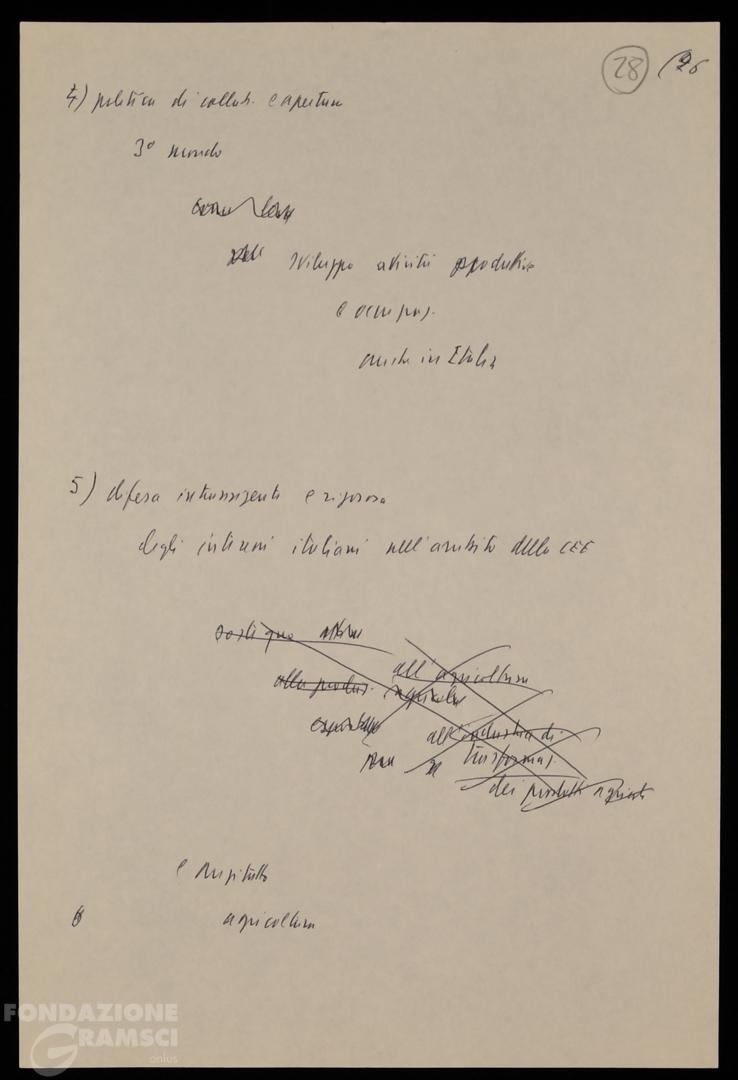 28 26
4) politica di collab. e apertura
3° mondo
sviluppo attività produttive
e occupaz.
anche in Italia
5) difesa intransigente e rigorosa
degli interessi italiani nell'ambito della CEE
all'agricoltura
alla produz. agricola
all'industria di
trasformaz.
dei prodotti agricoli
e soprattutto
6 agricoltura
FONDAZIONE
GRAMSCI
onlus